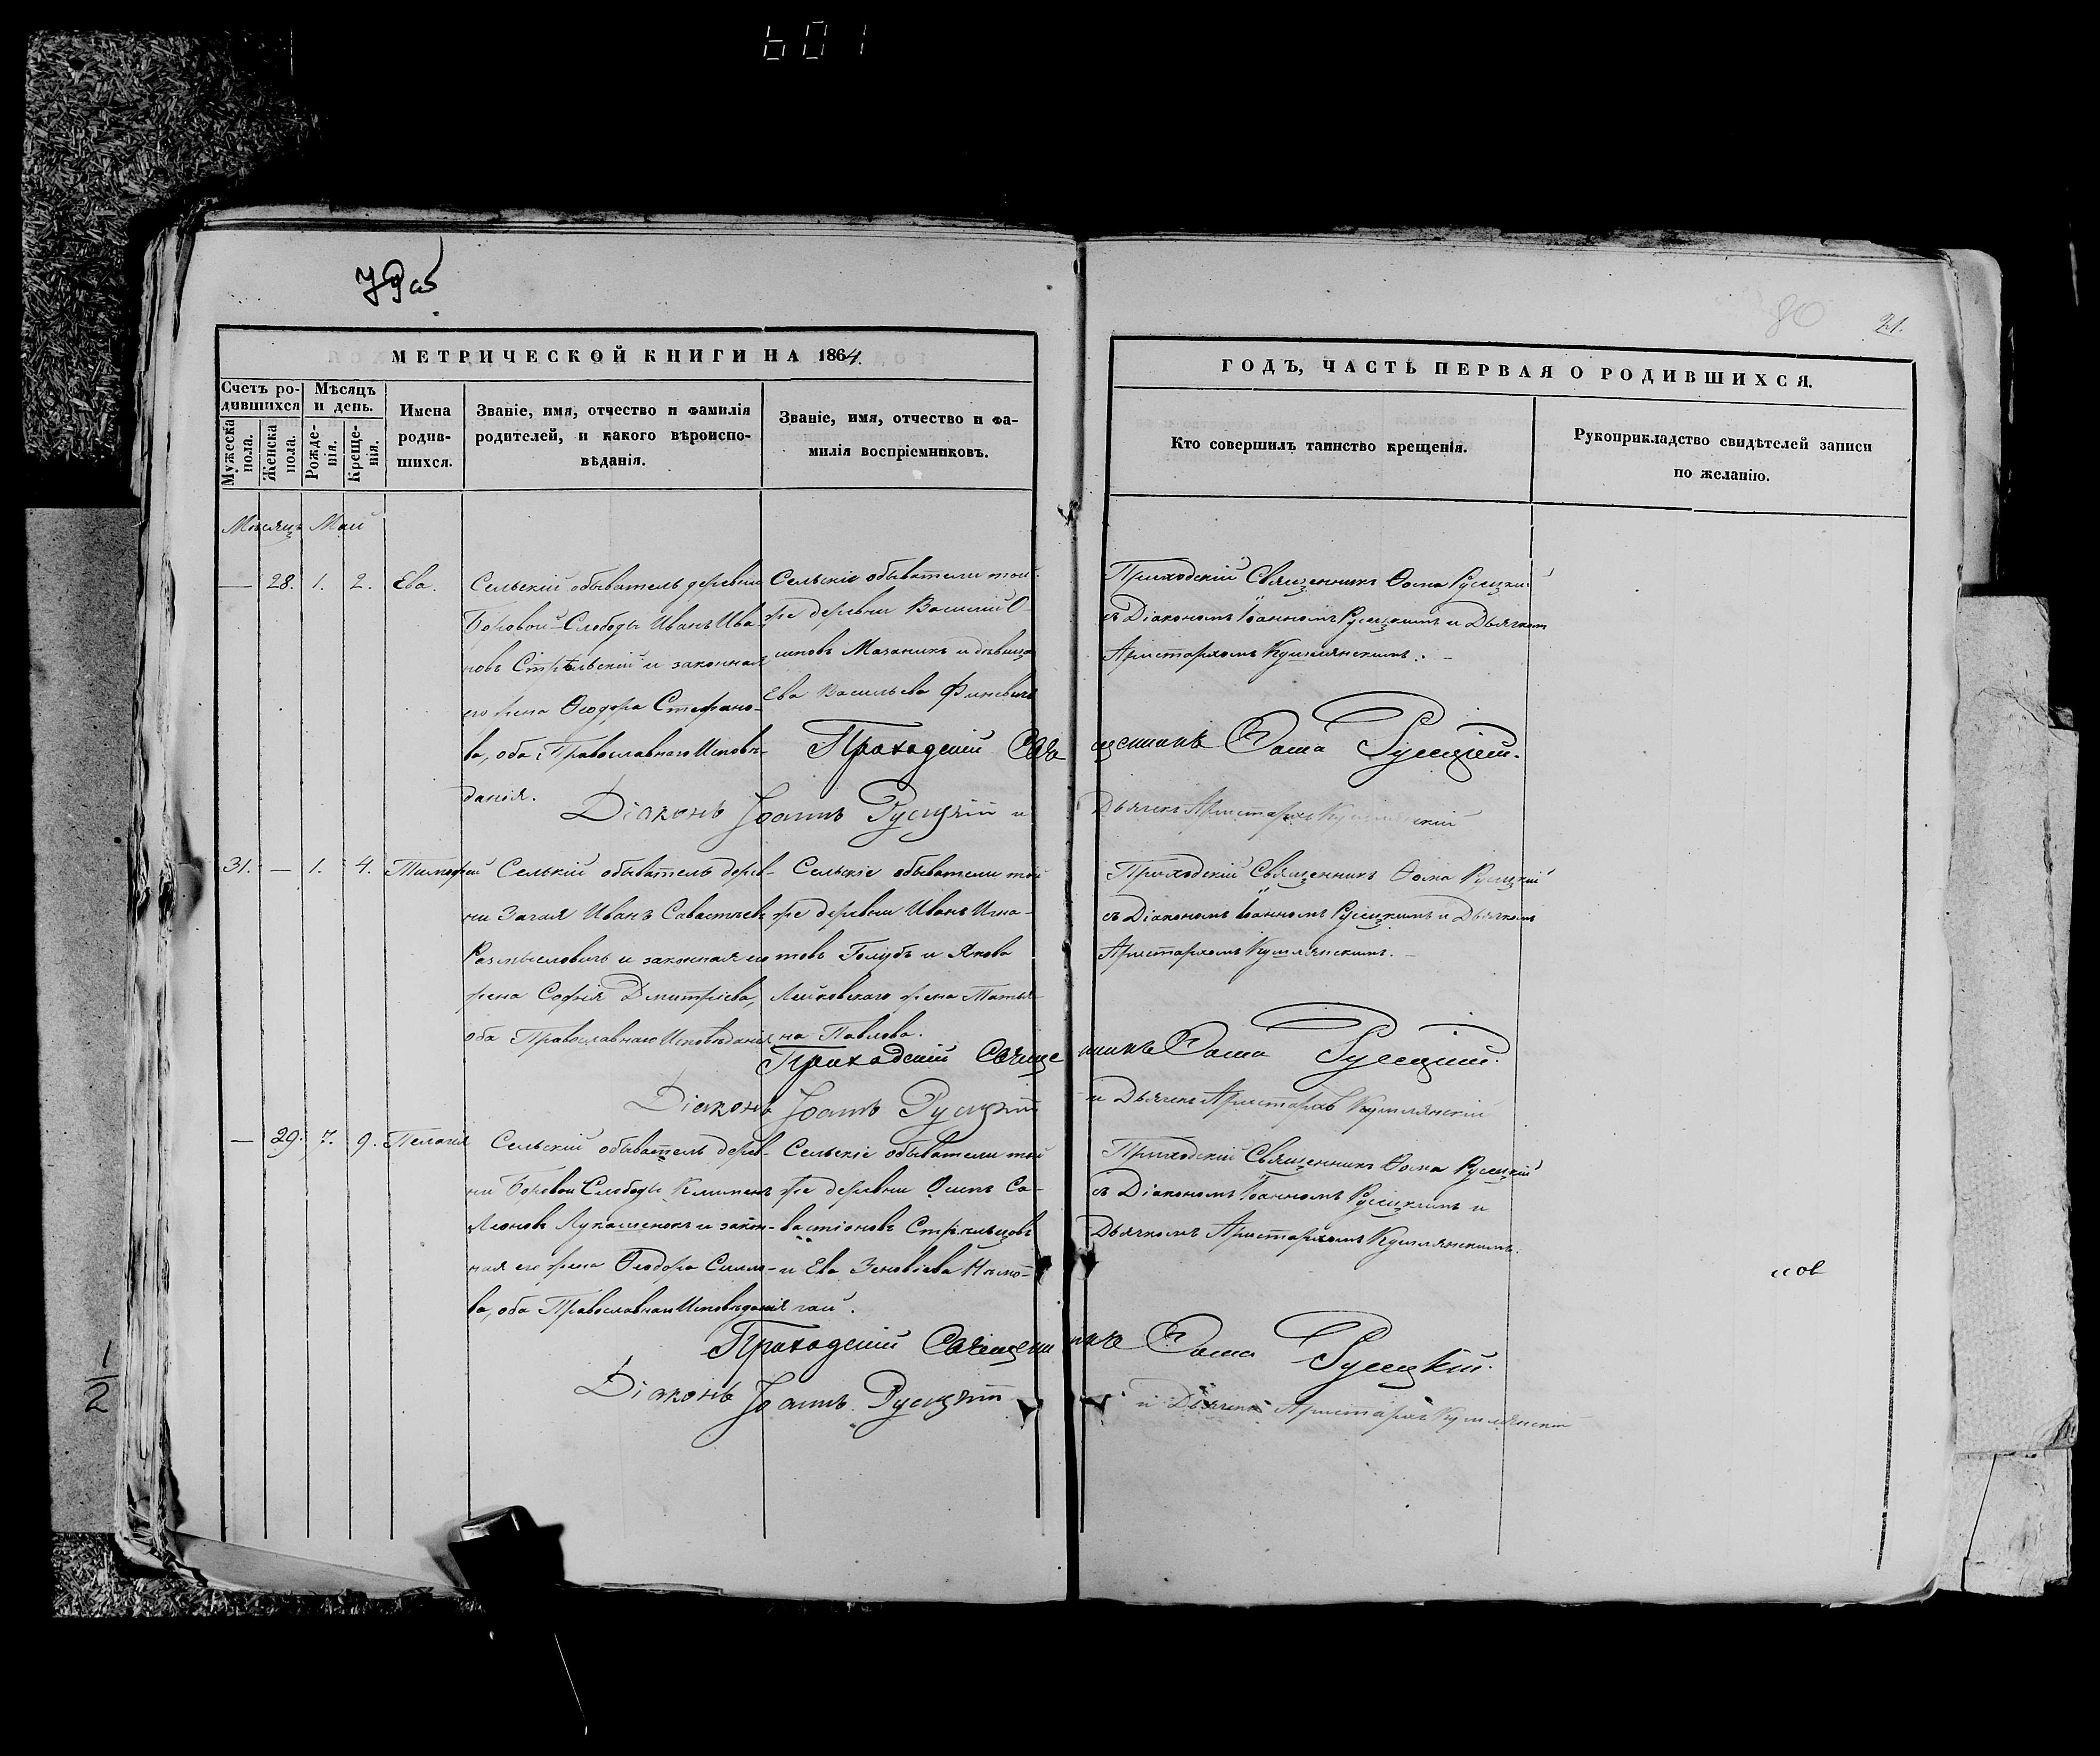 601
79об
80
21.
МЕТРИЧЕСКОЙ КНИГИ НА 1864.
ГОДЪ, ЧАСТЬ ПЕРВАЯ О РОДИВШИХСЯ.
Счетъ ро-
дившихся
Мѣсяцъ
и день.
Мужеска
пола.
Женска
пола.
Рожде-
нія.
Креще-
нія.
Имена
родив-
шихся.
Званіе, имя, отчество и фамилія
родителей, и какого вѣроиспо-
вѣданія.
Званіе, имя, отчество и фа-
милія воспріемниковъ.
Кто совершилъ таинство крещенія.
Рукоприкладство свидѣтелей записи
по желанію.
Мѣсяцъ Май
— 28. 1. 2. Ева.
Сельскій обыватель деревни
Боровой-Слободы Иванъ Ива-
новъ Стрѣльскій и законная
его жена Ѳеодора Стефано-
ва, оба Православнаго Исповѣ-
данія.
Сельскіе обыватели той-
же деревни Василій О-
сиповъ Мазаникъ и дѣвица
Ева Васильева
Приходскій Священникъ Ѳома Русецкій
съ Діакономъ Іоанномъ Русецкимъ и Дьячкомъ
Аристархомъ Кушлянскимъ.
Приходскій Священникъ Ѳома Русецкій.
Діаконъ Іоаннъ Русецкій и Дьячекъ Аристархъ Кушлянскій
31. — 1. 4. Тимофей
Селький обыватель дерев-
ни Загая Иванъ Савастьевъ
Размысловичъ и законная его
жена Софія Дмитріева,
оба Православнаго Исповѣданія
Сельскіе обыватели той
же деревни Иванъ Игна-
товъ Голубъ и Якова
жена Татья-
на Павлова.
Приходскій Священникъ Ѳома Русецкій
съ Діакономъ Іоанномъ Русецкимъ и Дьячкомъ
Аристархомъ Кушлянскимъ.
Приходскій Священникъ Ѳома Русецкій.
Діаконъ Іоаннъ Русецкій и Дьячекъ Аристархъ Кушлянскій
— 29. 7. 9. Пелагія
Сельскій обыватель дерев-
ни Боровой Слободы Климентъ
Лукашенокъ и закон-
ная его жена Ѳеодора
ва, оба Православнаго Исповѣданія
Сельскіе обыватели той
же деревни Осипъ Са-
вастіоновъ Стрѣльцовъ
и Ева Зеновіева
Приходскій Священникъ Ѳома Русецкій
съ Діакономъ Іоанномъ Русецкимъ и
Дьячкомъ Аристархомъ Кушлянскимъ.
Приходскій Священникъ Ѳома Русецкій.
Діаконъ Іоаннъ Русецкій и Дьячекъ Аристархъ Кушлянскій
1/2